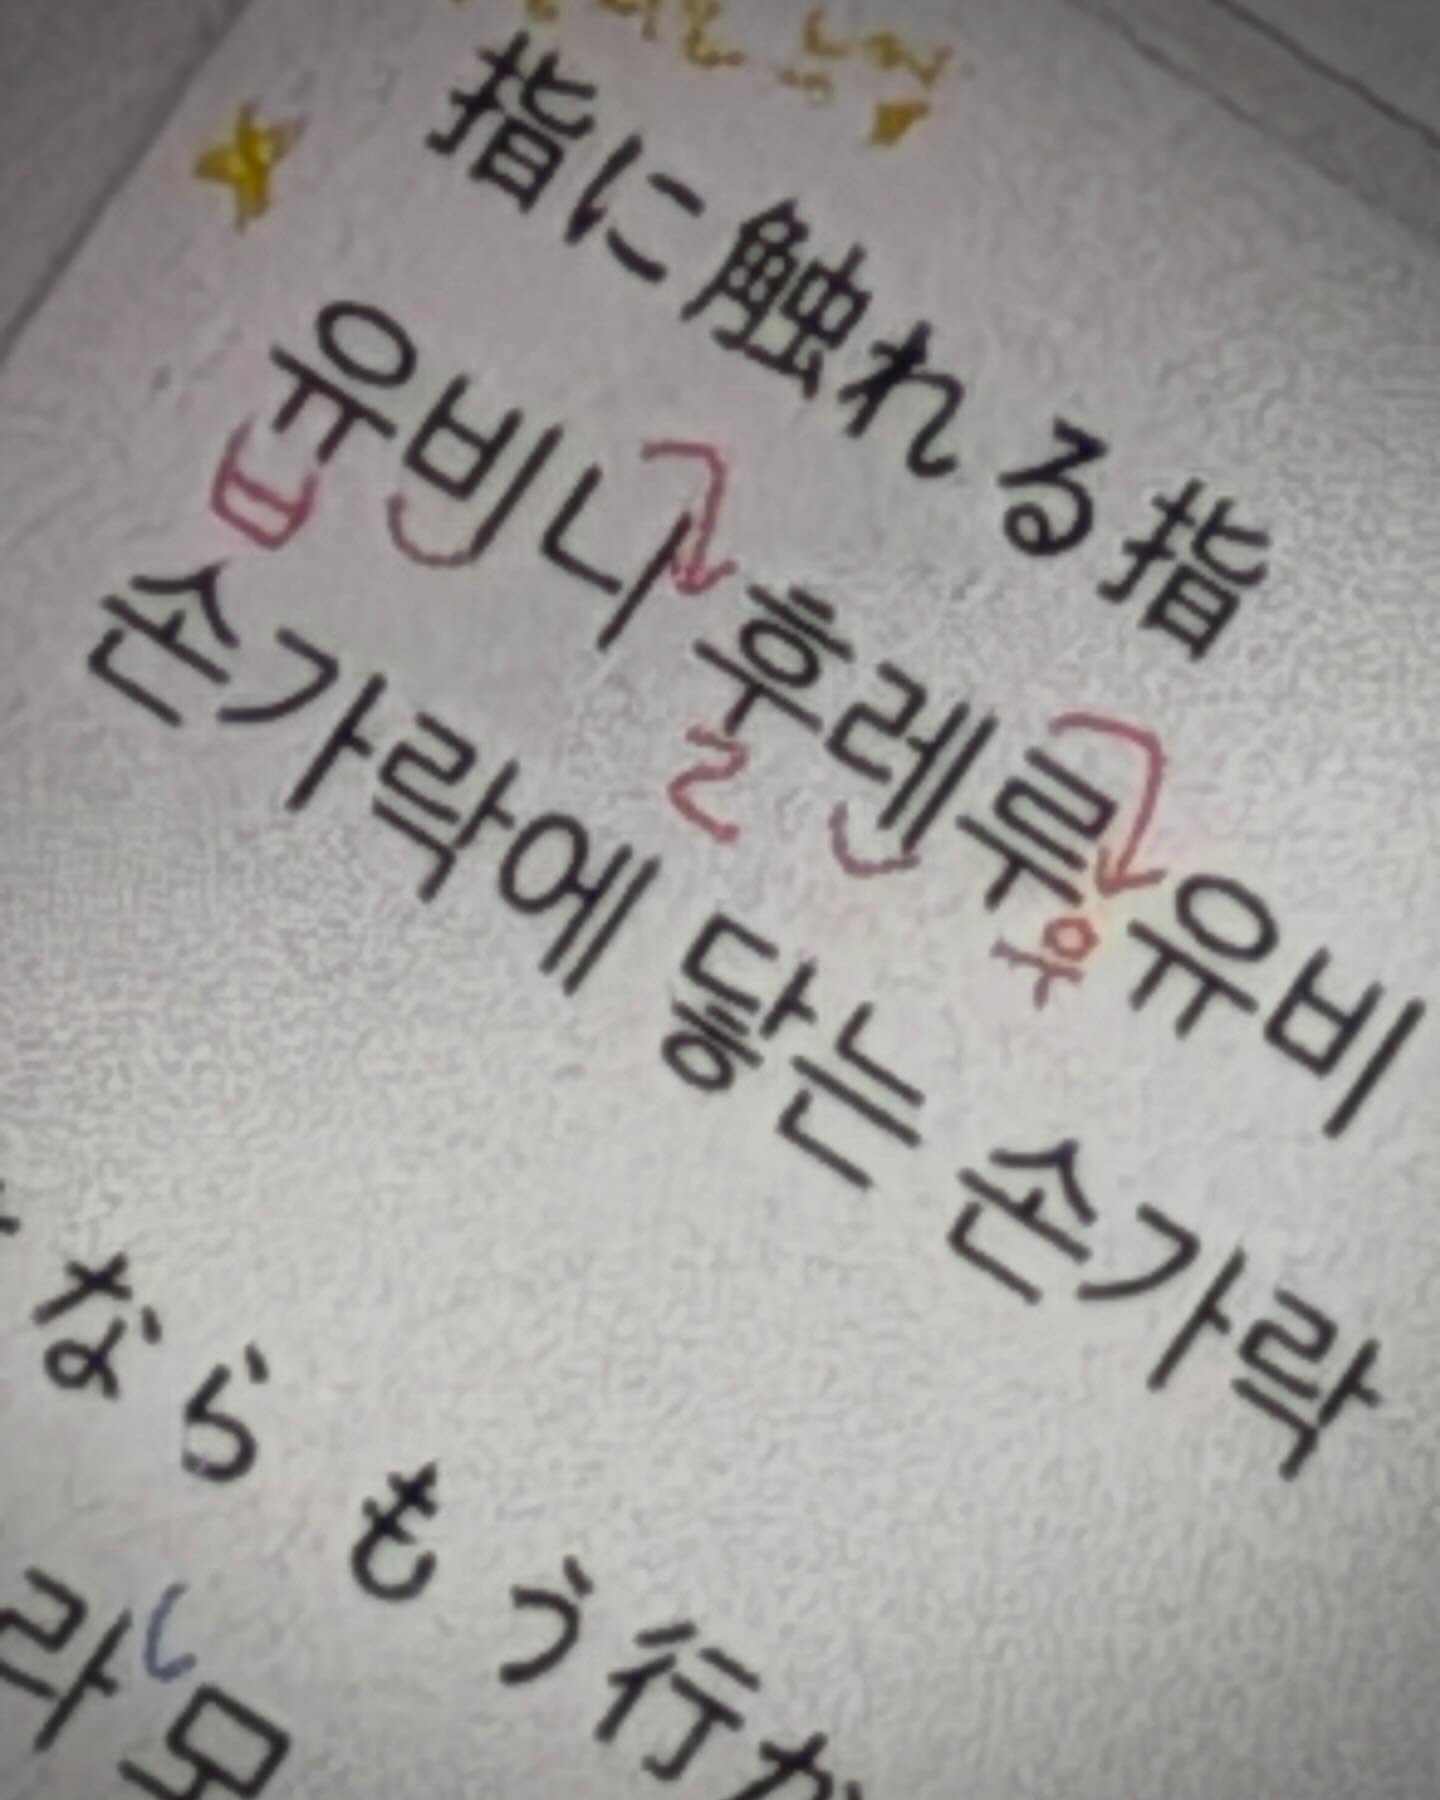 指に触れる指
유비니 후레루 유비
ㅂ ㄹ 우
손가락에 닿는 손가락
なら もう行か
라 모